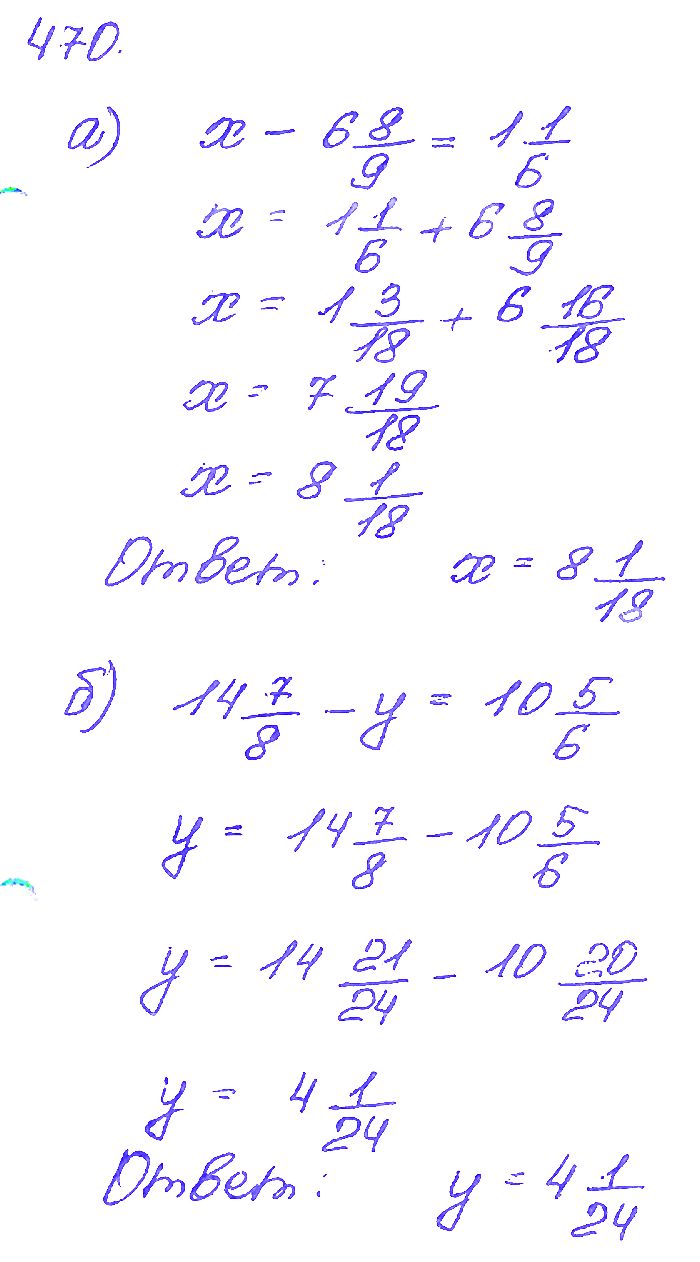 470.
а) x - 6 8/9 = 1 1/6
x = 1 1/6 + 6 8/9
x = 1 3/18 + 6 16/18
x = 7 19/18
x = 8 1/18
Ответ: x = 8 1/18
б) 14 7/8 - y = 10 5/6
y = 14 7/8 - 10 5/6
y = 14 21/24 - 10 20/24
y = 4 1/24
Ответ: y = 4 1/24